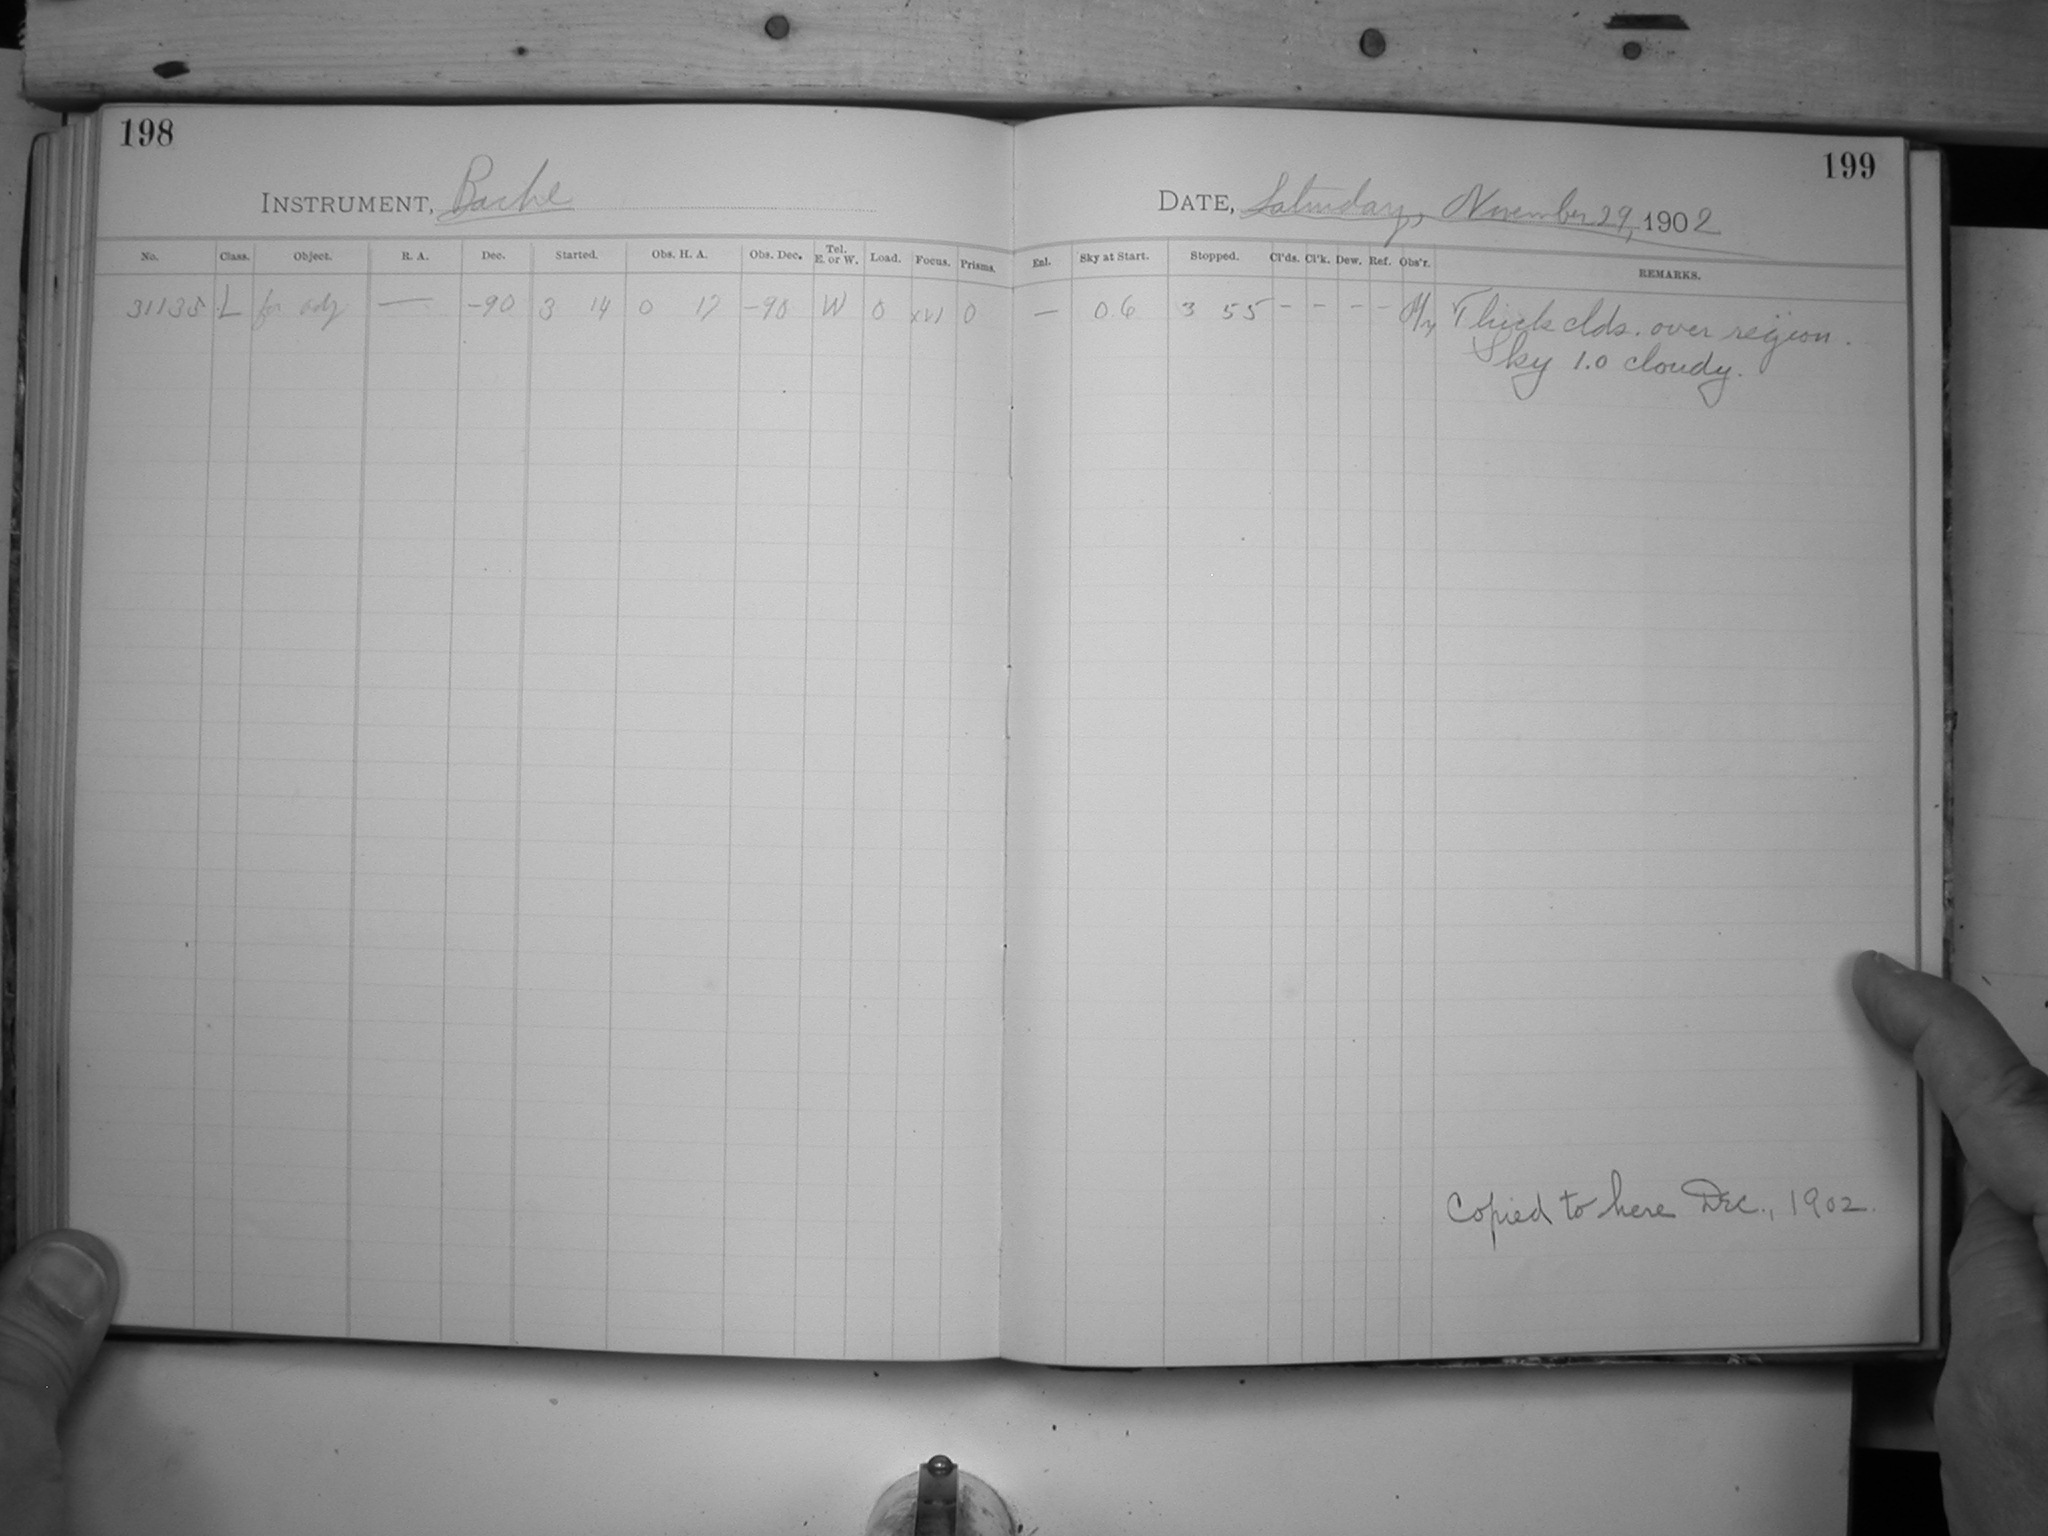 198
199
INSTRUMENT, Bache
DATE, Saturday, November 29, 1902
No. Class. Object. R. A. Dec. Started. Obs. H. A. Obs. Dec. Tel. E. or W. Load. Focus. Prisms. Enl. Sky at Start. Stopped. Cl'ds. Cl'k. Dew. Ref. Obs'r. REMARKS.
31135 L for adj — -90 3 14 0 17 -90 W 0 xvi 0 — 0.6 3 55 - - - - Thick clds. over region.
Sky 1.0 cloudy.
Copied to here Dec., 1902.